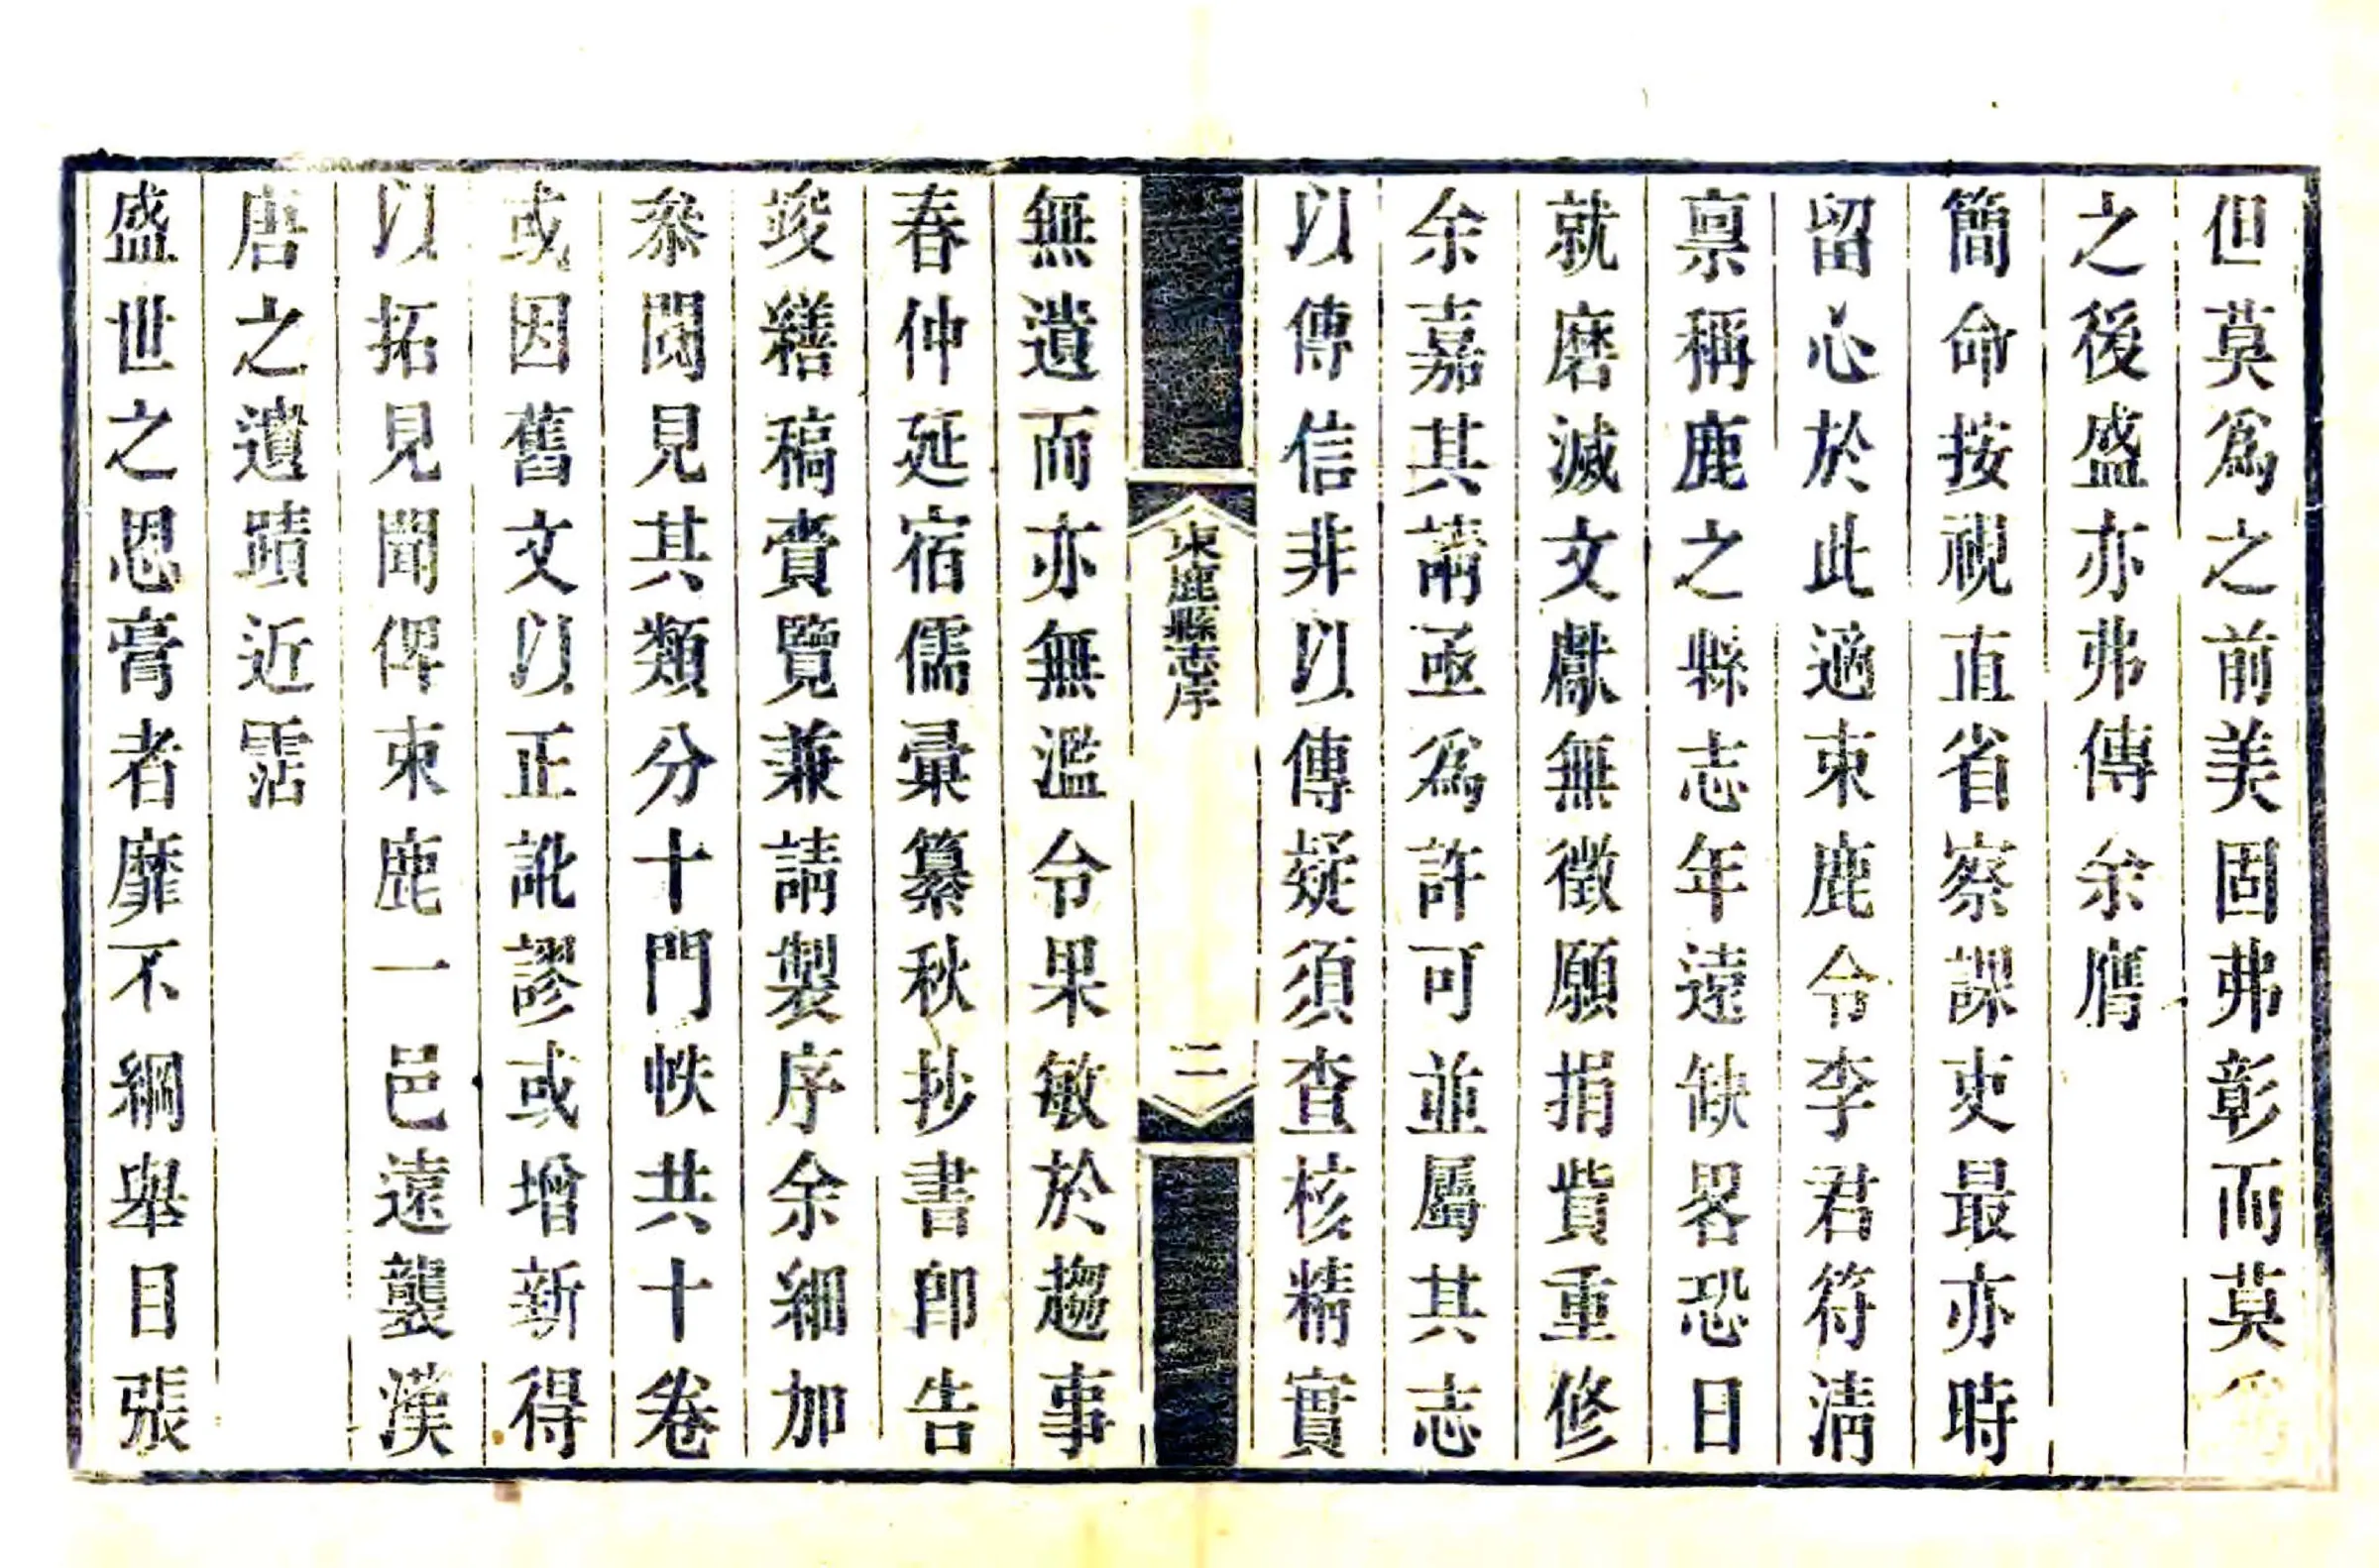 但莫爲之前美固弗彰而莫
之後盛亦弗傳余膺
簡命按視直省察課吏最亦時
留心於此適束鹿令李君符清
禀稱鹿之縣志年遠缺畧恐日
就磨滅文獻無徵願捐貲重修
余嘉其請亟爲許可並屬其志
以傳信非以傳疑須查核精實
束鹿縣志序
二
無遺而亦無濫令果敏於趨事
春仲延宿儒彙纂秋抄書卽告
竣繕稿賫覽兼請製序余細加
叅閱見其類分十門帙共十卷
或因舊文以正訛謬或增新得
以拓見聞俾束鹿一邑遠襲漢
唐之遺蹟近霑
盛世之恩膏者靡不綱舉目張